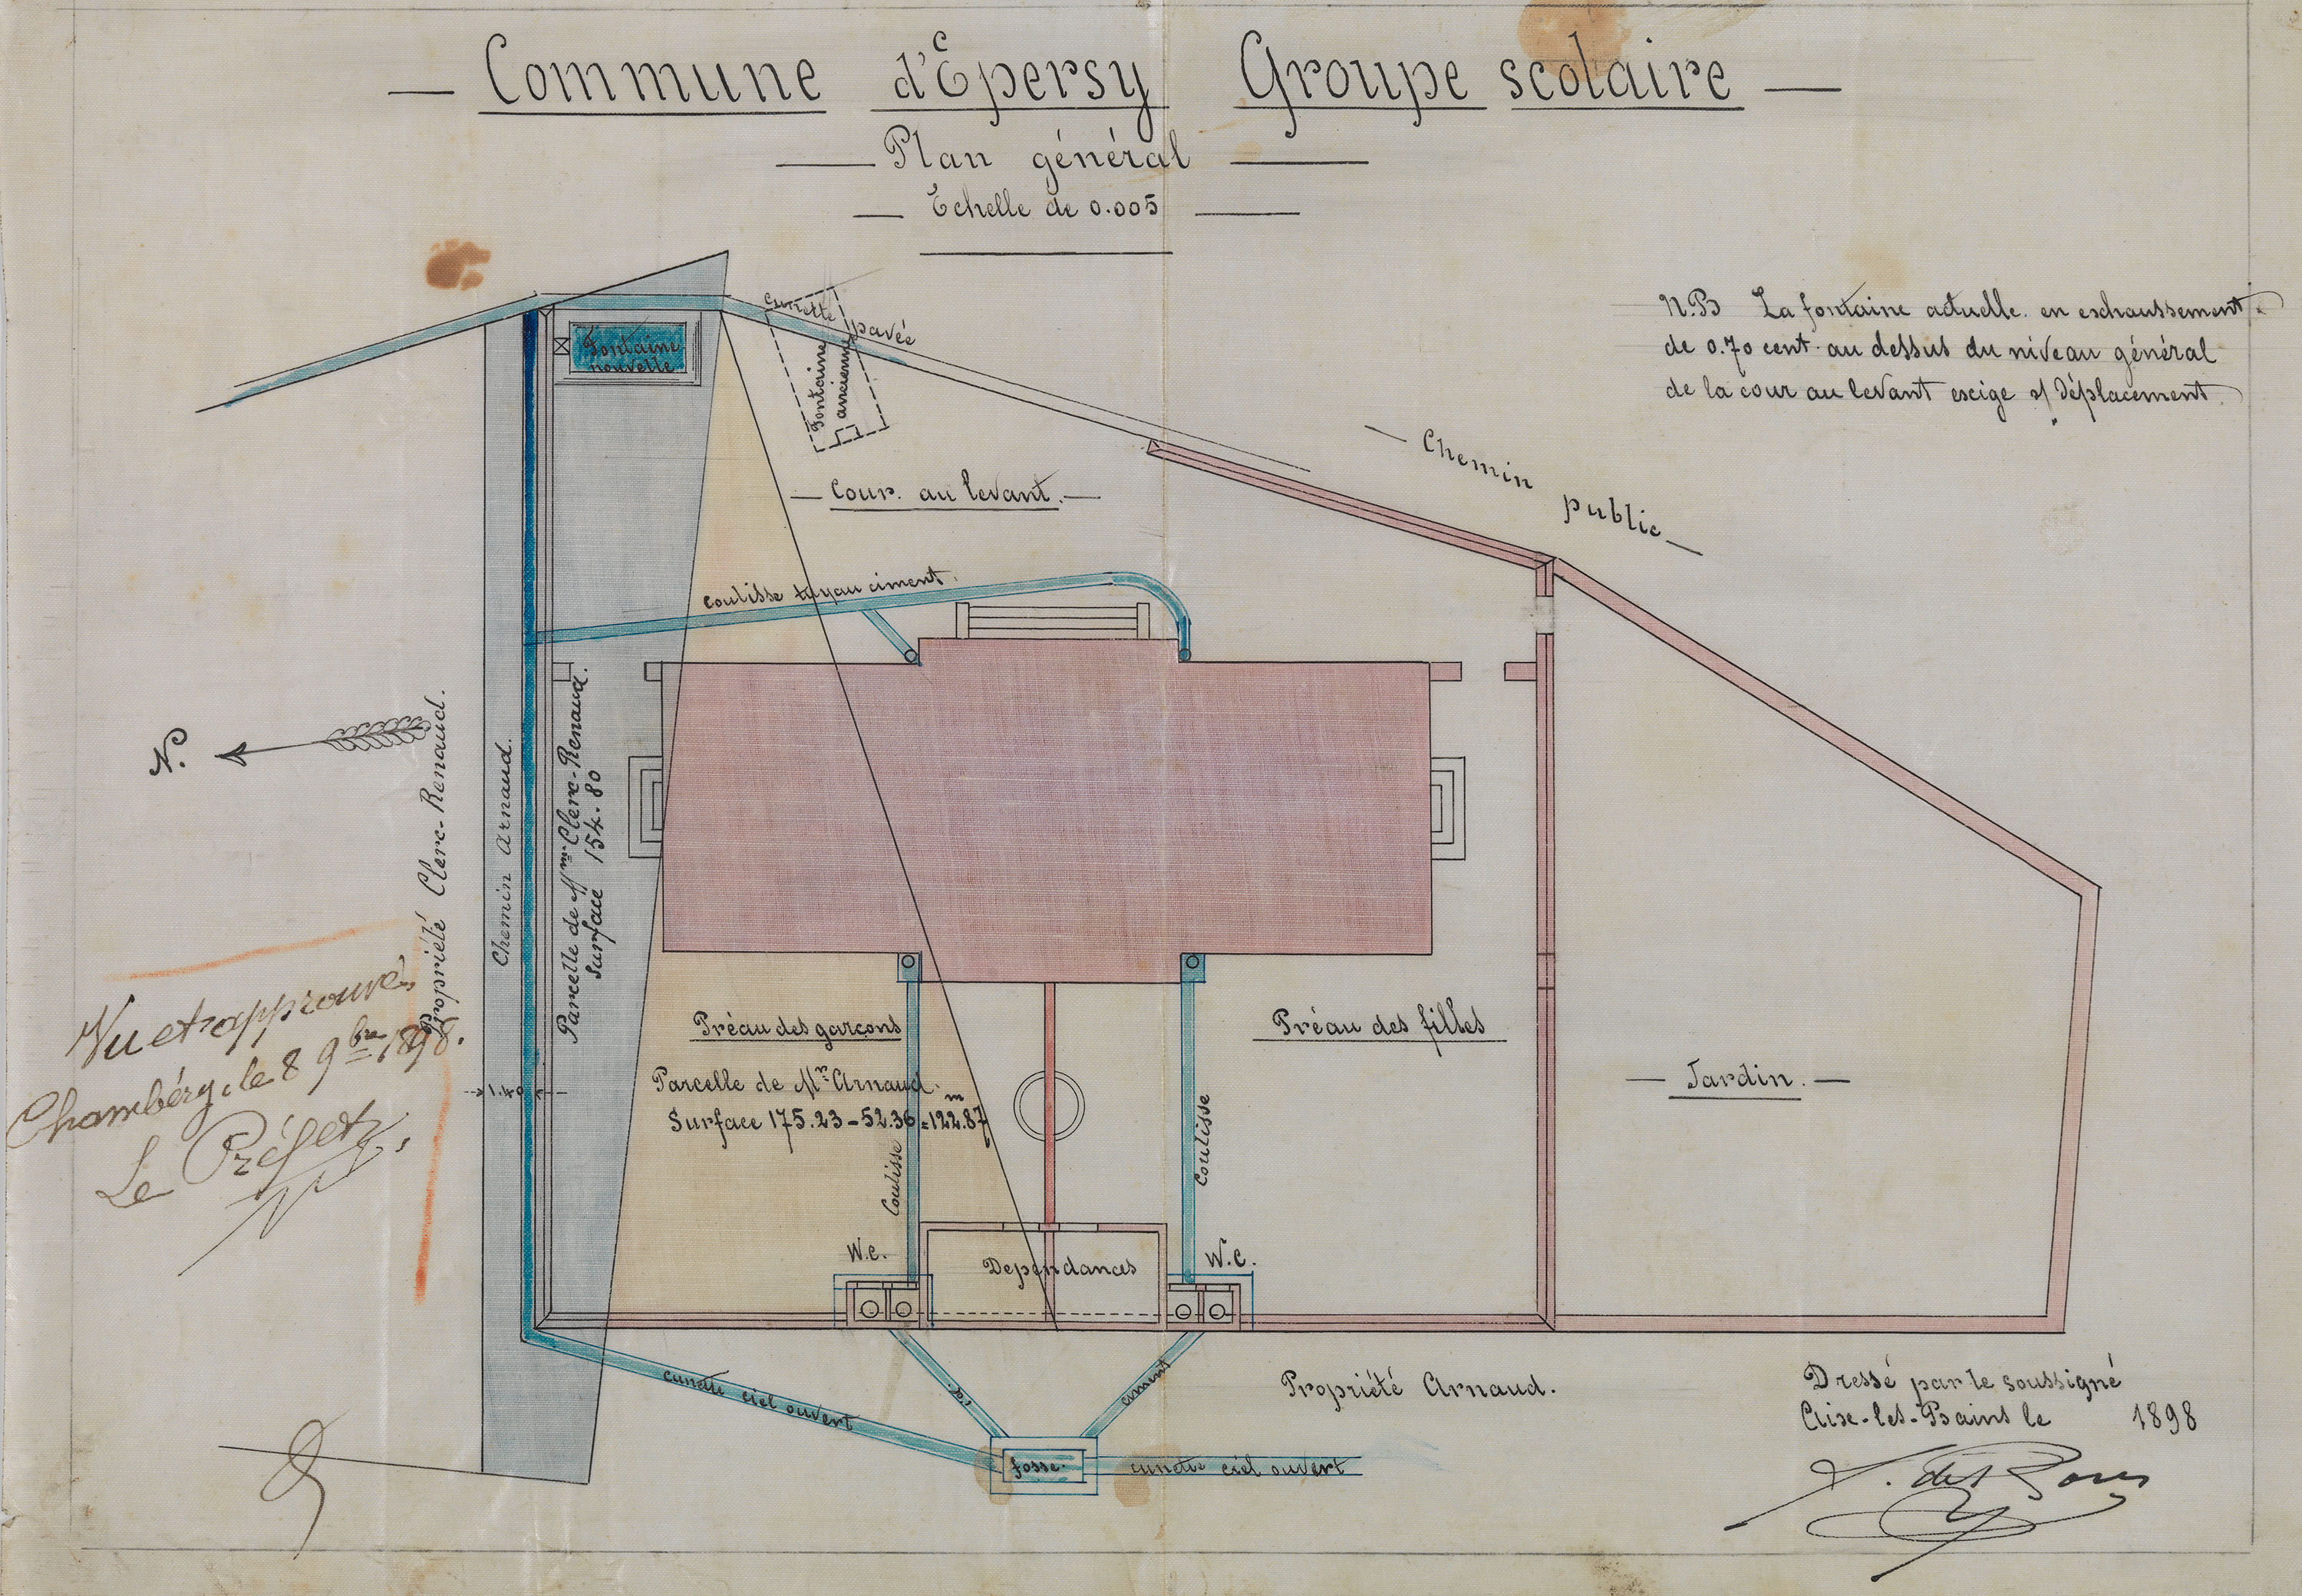 Commune d'Epersy Groupe scolaire
Plan général
Echelle de 0.005
N.B La fontaine actuelle en exhaussement
de 0.70 cent. au dessus du niveau général
de la cour au levant exige s/ déplacement
cunette pavée
Fontaine
nouvelle
Fontaine
ancienne
Chemin public
Cour au levant.
coulisse tuyau ciment.
N.
Propriété Clerc-Renaud.
Chemin Arnaud.
Parcelle de Mme Clerc-Renaud.
Surface 154.80
Vu et approuvé,
Chambéry, le 8 9bre 1898.
Le Préfet,
1.40
Préau des garçons
Préau des filles
Parcelle de Mr Arnaud.
Surface 175.23-52.36=122.87m
Coulisse
Coulisse
Jardin.
W.C.
Dependances
W.C.
cunette ciel ouvert
d.
ciment
fosse.
cunette ciel ouvert
Propriété Arnaud.
Dressé par le soussigné
Aix-les-Bains le 1898